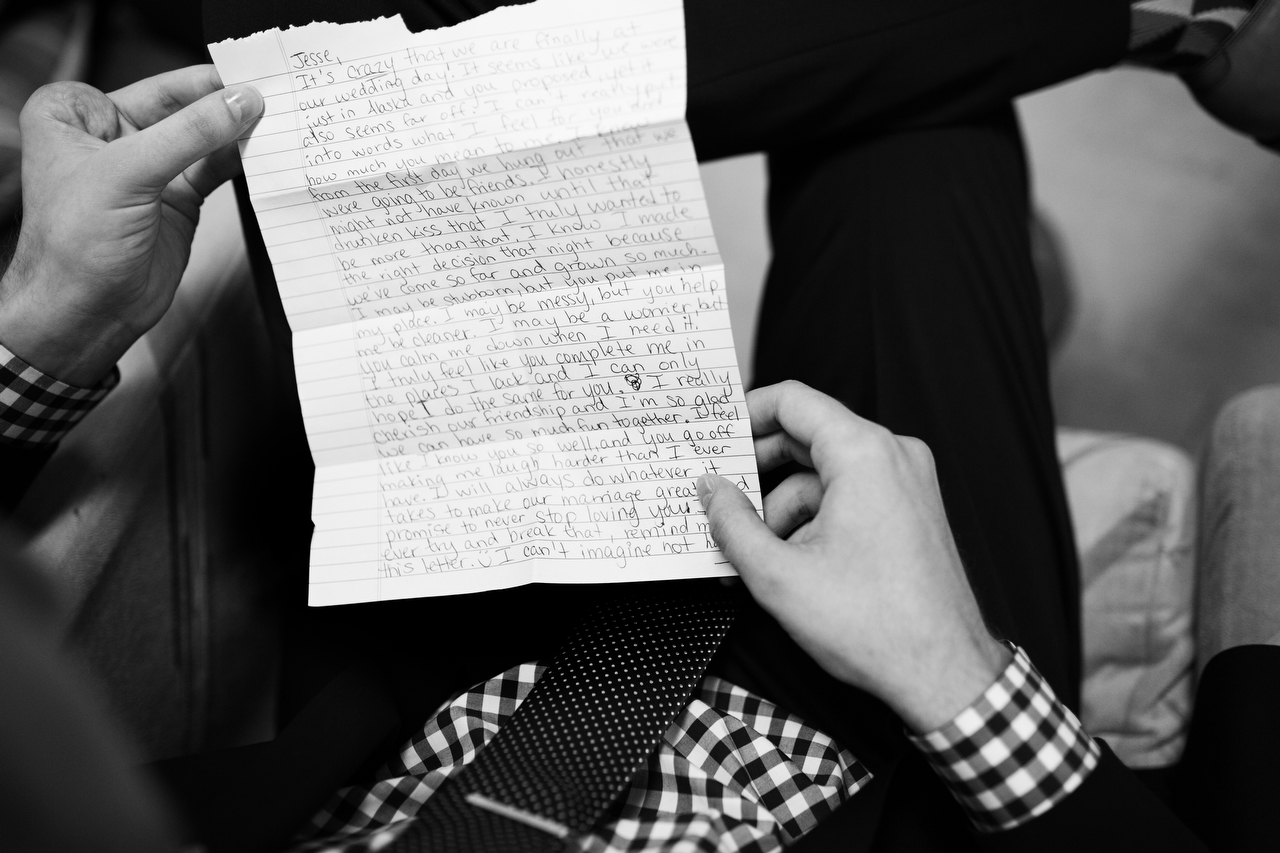 Jesse,
It's crazy that we are finally at
our wedding day! It seems like we were
just in Alaska and you proposed, yet it
also seems far off. I can't really put
into words what I feel for you and
how much you mean to me. I knew
from the first day we hung out that we
were going to be friends. I honestly
might not have known until that
drunken kiss that I truly wanted to
be more than that. I know I made
the right decision that night because
we've come so far and grown so much.
I may be stubborn, but you put me in
my place. I may be messy, but you help
me be cleaner. I may be a worrier, but
you calm me down when I need it.
I truly feel like you complete me in
the places I lack and I can only
hope I do the same for you. I really
cherish our friendship and I'm so glad
we can have so much fun together. I feel
like I know you so well, and you go off
making me laugh harder than I ever
have. I will always do whatever it
takes to make our marriage great
promise to never stop loving you!
ever try and break that, remind
this letter. I can't imagine not